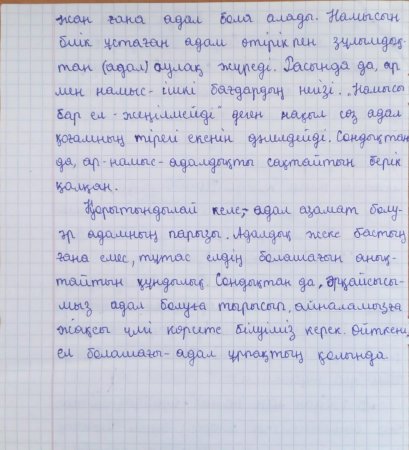 жан ғана адал бола алады. Намысын
білік ұстаған адам өтірікпен зұлымдық-
тан (адал) аулақ жүреді. Расында да, ар
мен намыс - ішкі бағдардың негізі. „Намысы
бар ел - жеңілмейді" деген нақыл сөз адал
қоғамның тірегі екенін дәлелдейді. Сондықтан
да, ар-намыс - адалдықты сақтайтын берік
қалқан.
Қорытындылай келе,- адал азамат болу-
әр адамның парызы. Адалдық жеке бастың
ғана емес, тұтас елдің болашағын анық-
тайтын құндылық. Сондықтан да, әрқайсысы-
мыз адал болуға тырысып, айналамызға
жақсы үлгі көрсете білуіміз керек. Өйткені,
ел болашағы - адал ұрпақтың қолында.